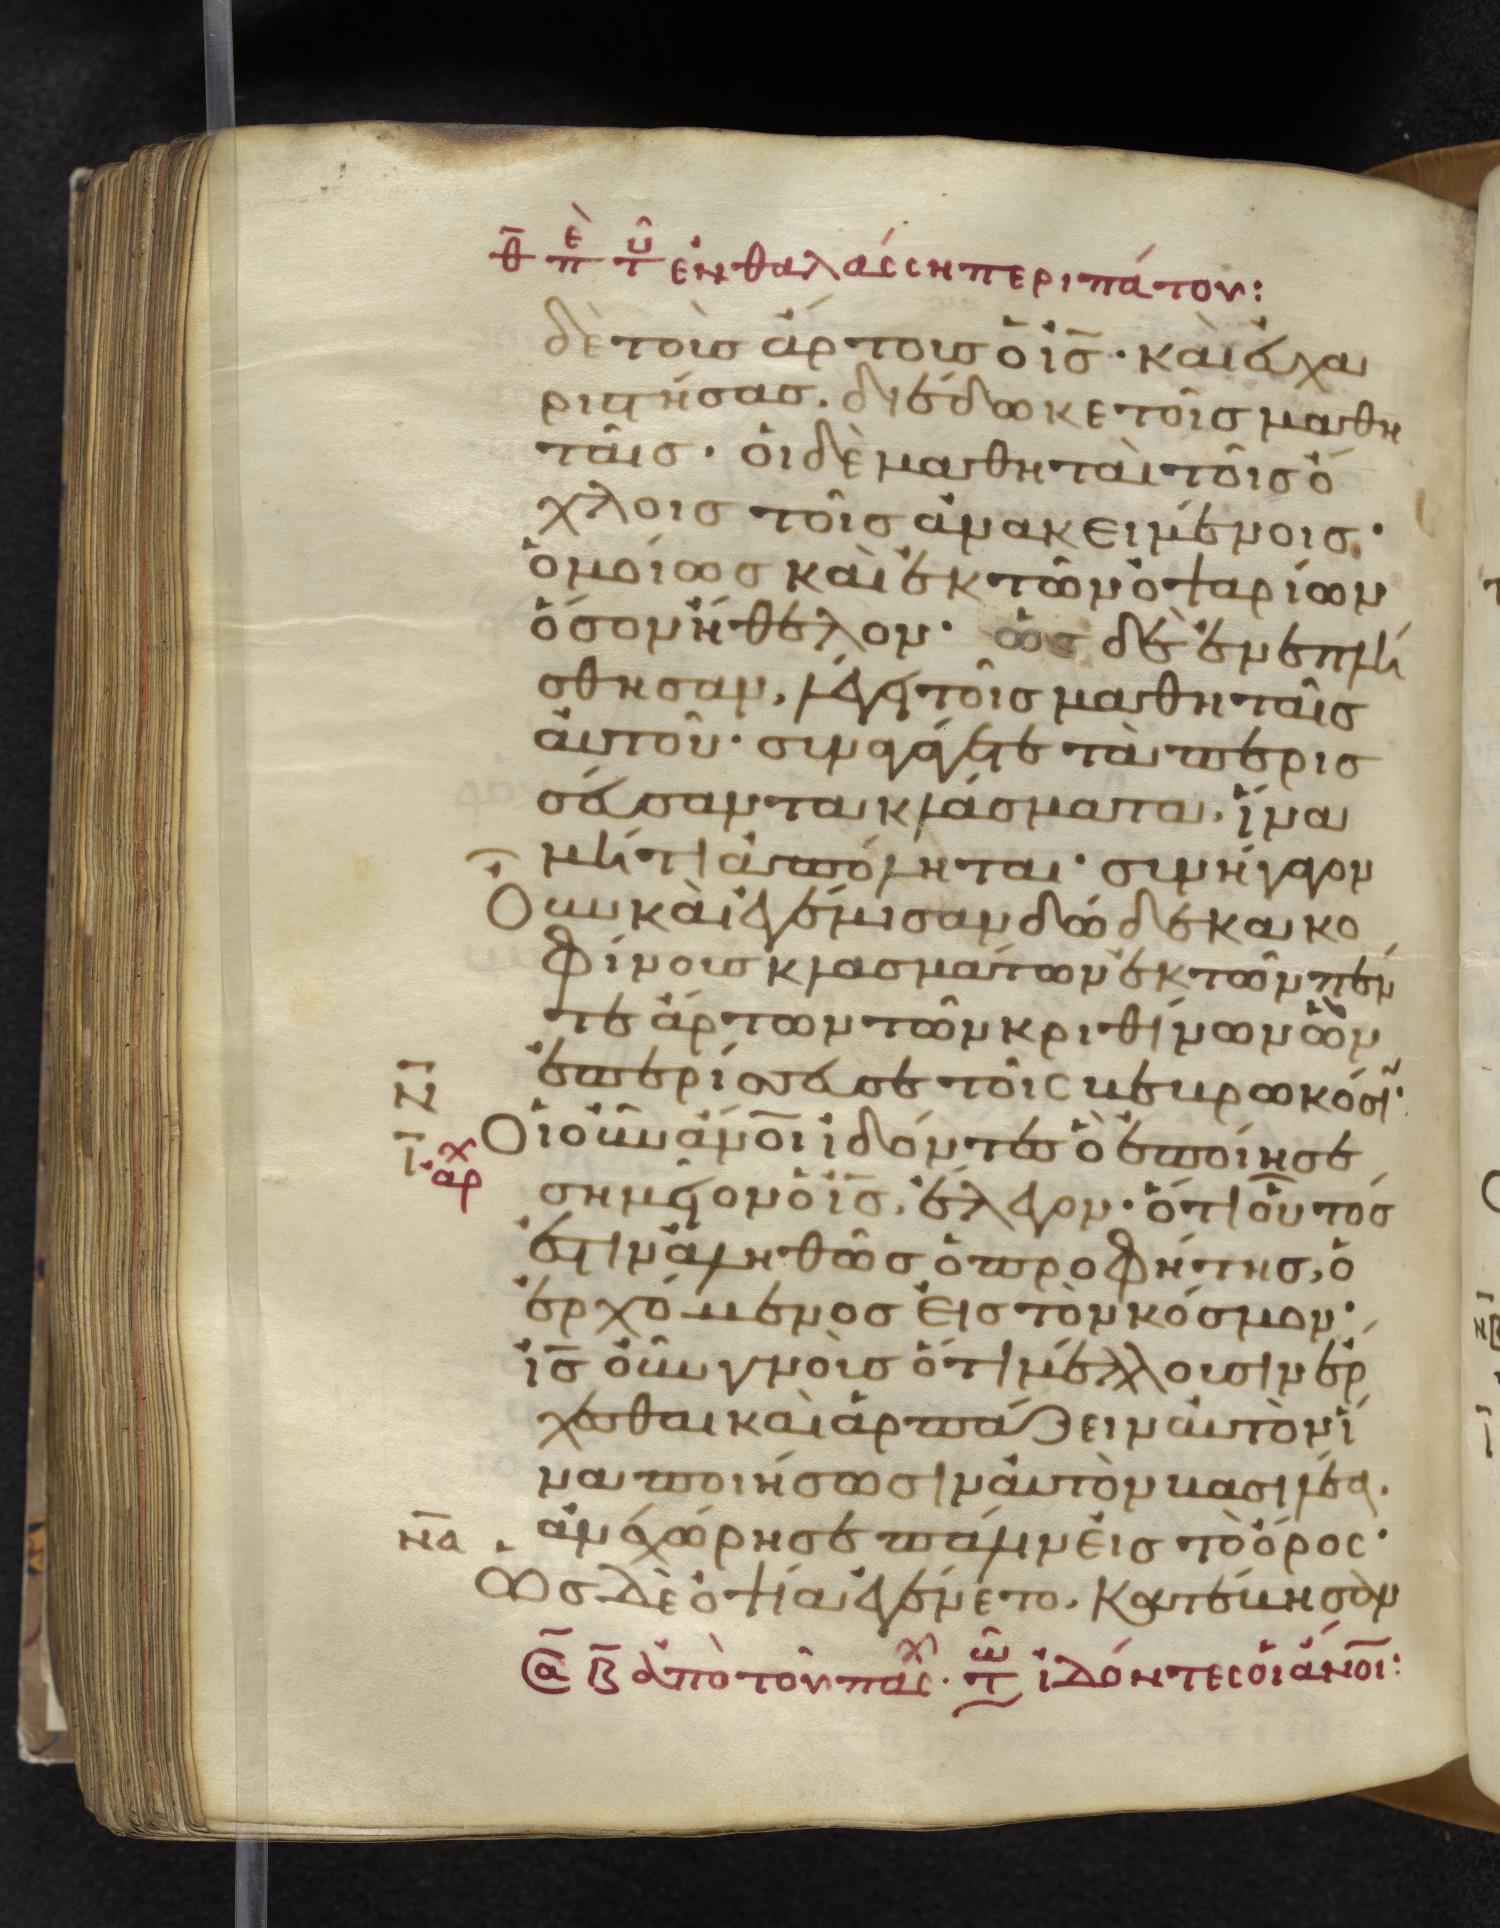 θ̄ πὲ τῦ ἐν θαλάσση περιπάτου:
δὲ τοὺσ ἄρτουσ ὁ ἰ̅σ̅· καὶ εὐχα
ριστήσασ. διέδωκε τοῖσ μαθη
ταῖσ· οἱ δὲ μαθηταὶ τοῖσ ὄ
χλοισ τοῖσ ἀνακειμένοισ·
ὁμοίωσ καὶ ἐκ τῶν ὀψαρίων
ὅσον ἤθελον· ὡσ δὲ ἐνεπλή
σθησαν, λέγει τοῖσ μαθηταῖσ
αὐτοῦ· συναγάγετε τὰ περισ
σεύσαντα κλάσματα, ἵνα
μή τι ἀπόληται· συνήγαγον
Οὖν καὶ ἐγέμισαν δώδεκα κο
φίνουσ κλασμάτων ἐκ τῶν πέν
τε ἄρτων τῶν κριθίνων ὧν
ἐπερίσσευσε τοῖσ βεβρωκόσιν·
ν̅ζ̅
ῑ
ἀρχ
Οἱ οὖν ἀν̅ο̅ι ἰδόντεσ ὃ ἐποίησε
σημεῖον ὁ ἰ̅σ̅, ἔλεγον· ὅτι οὗτόσ
ἐστιν ἀληθῶσ ὁ προφήτησ, ὁ
ἐρχόμενοσ εἰσ τὸν κόσμον·
ἰ̅σ̅ οὖν γνοὺσ ὅτι μέλλουσιν ἔρ
χεσθαι καὶ ἁρπάζειν αὐτὸν ἵ
να ποιήσωσιν αὐτὸν βασιλέα.
ἀνεχώρησε πάλιν εἰσ τὸ ὄροσ·
ν̅α̅
Ωσ δὲ ὀψία ἐγένετο. κατέβησαν
@̅α̅ β̅ ἀπὸ τοῦ πάσχ· τῶ ἰδόντεσ οἱ ἀν̅ο̅ι: